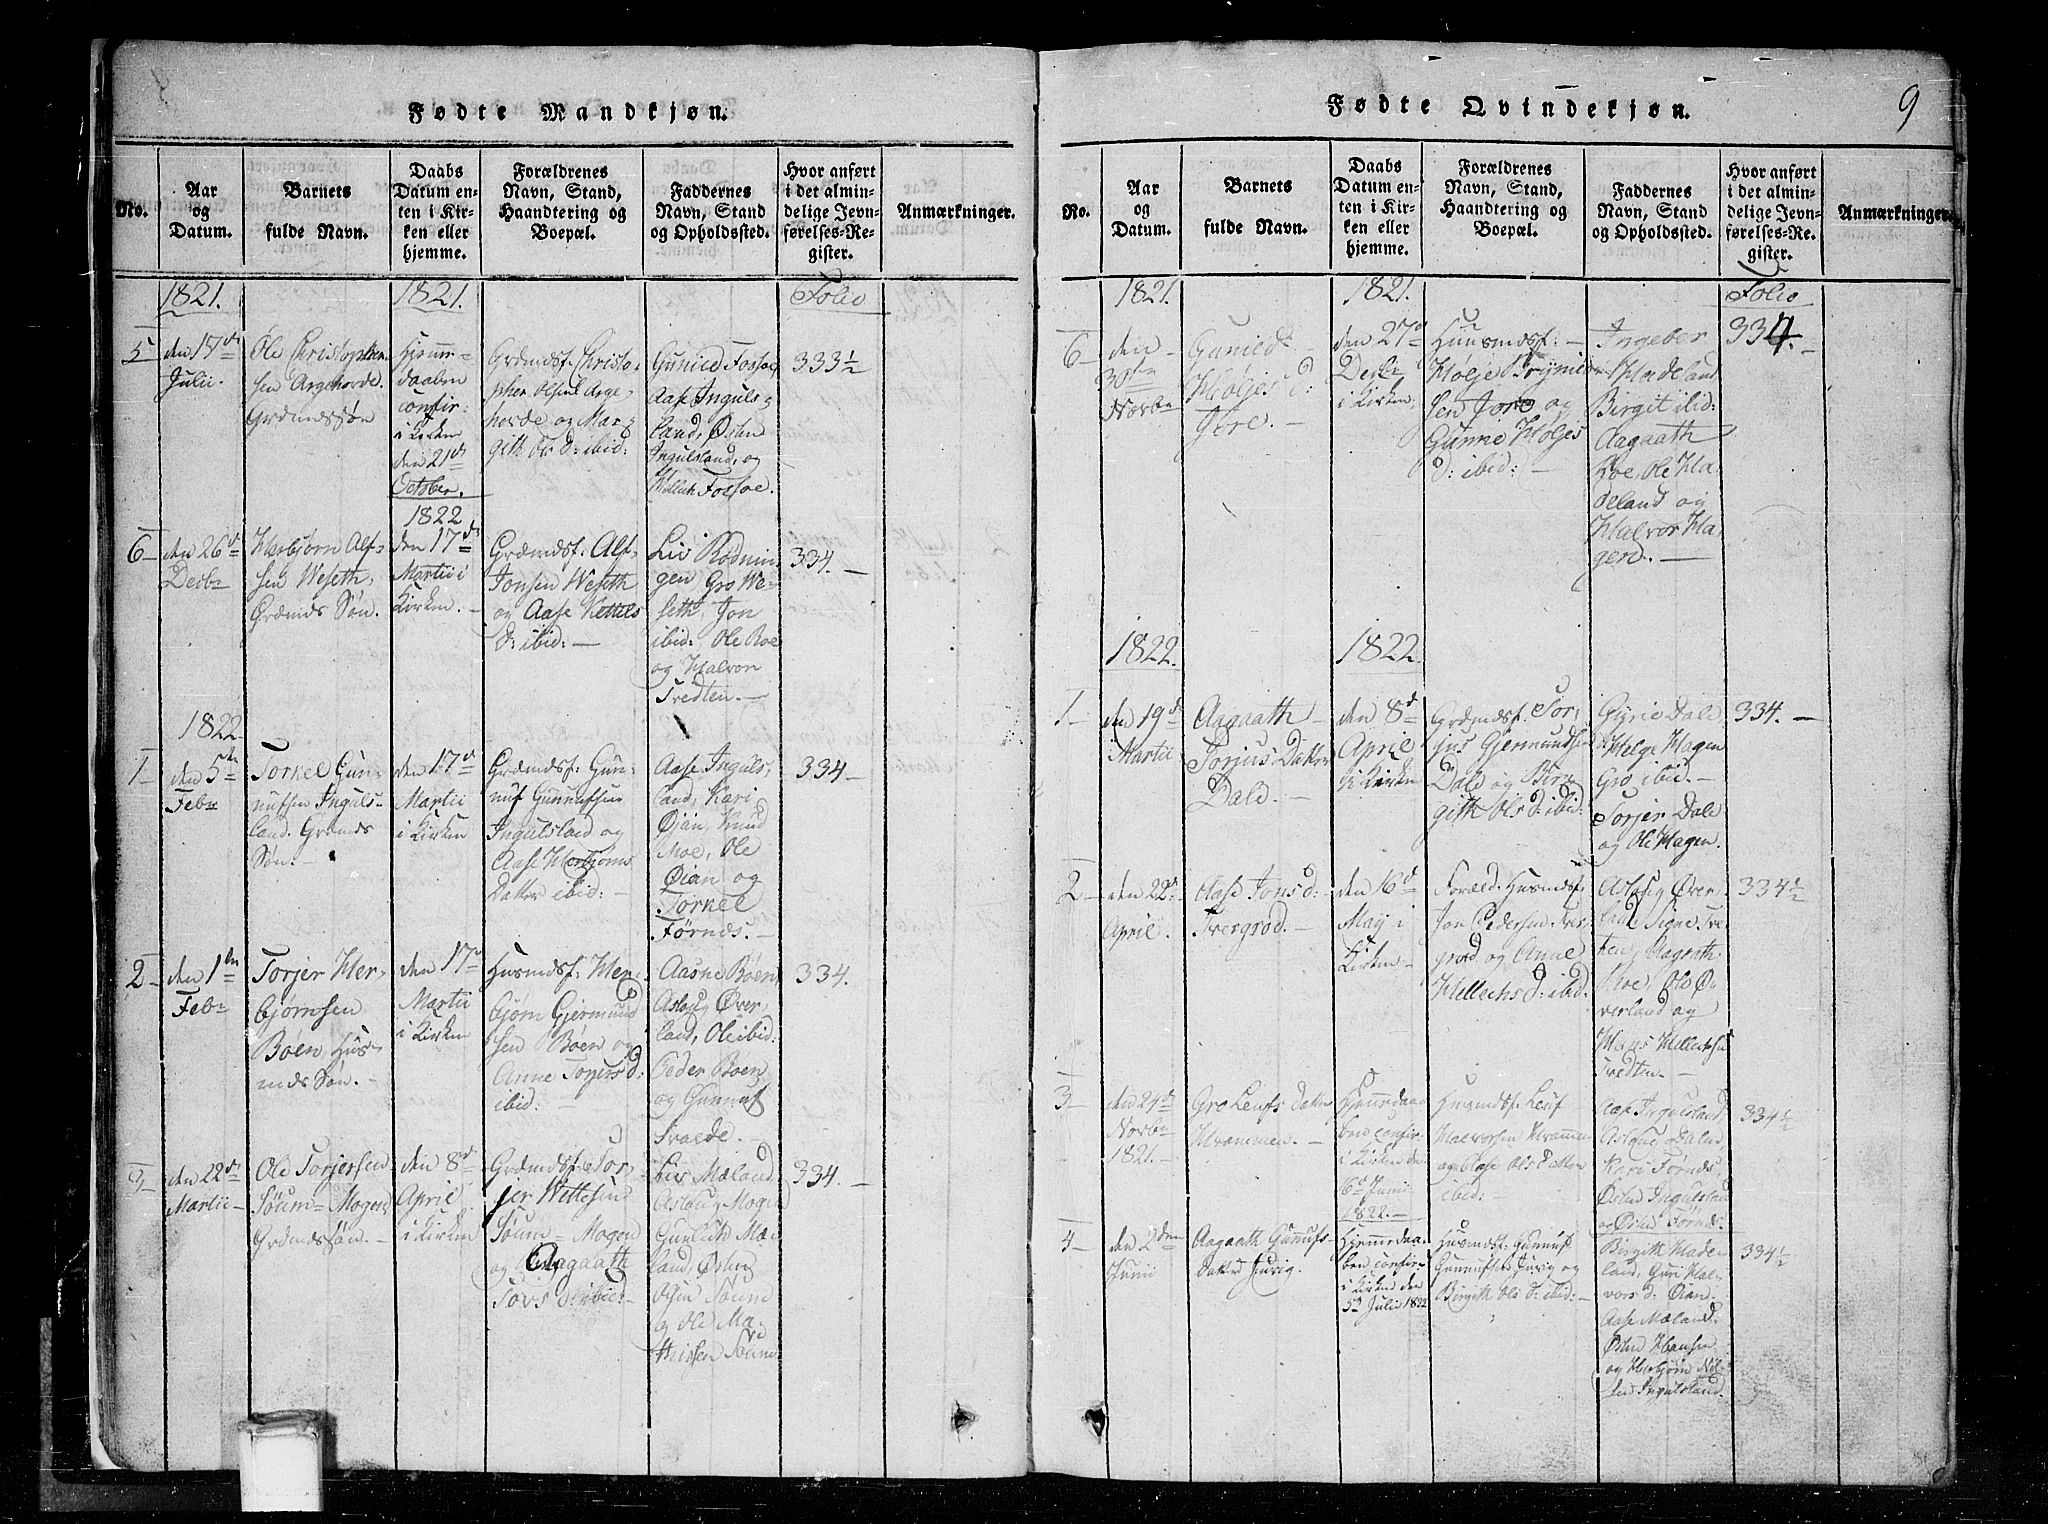 Fødte Mandkjøn.
No.
Aar
og
Datum.
Barnets
fulde Navn.
Daabs
Datum en-
ten i Kir-
ken eller
hjemme.
Forældrenes
Navn, Stand,
Haandtering og
Boepæl.
Faddernes
Navn, Stand
og Opholdssted.
Hvor anført
i det almin-
delige Jevn-
førelses-Re-
gister.
Anmærkninger.
1821.
1821.
Folio
5
den 15de
Julii.
Ole Christophen-
sen Argehovde.
Grdmdssøn
Hjemme-
daaben
confir-
i Kirken
den 21de
October.
Grdmdsf. Christo-
pher Olsen Arge-
hovde og Mar-
gith Ols D: ibid:
Gunild Fossøe
Aase Inguls-
land, Østen
Ingulsland, og
Kittil Fossøe.
333½
6
den 26de
Decbr
Herbjørn Alf-
sen Weseth,
Grdmds Søn.
1822
den 17de
Martii i
Kirken.
Grdmdsf. Alf
Jonsen Weseth
og Aase Kettels
D: ibid:
Liv Rødnin-
gen Gro We-
seth, Jon
ibid: Ole Roe
og Halvor
Tredten.
334.
1822
1
den 5te
Febr
Torkel Gun-
nufsen Inguls-
land. Grdmds
Søn.
den 17de
Martii
i Kirken
Grdmdsf. Gun-
nuf Gunnufsen
Ingulsland og
Aase Herbjørns
Datter ibid:
Aase Inguls-
land, Kari
Øian, Knud
Moe, Ole
Øian og
Torkel
Førnes.
334
2
den 1te
Febr
Torjer Her-
bjørnsen
Bøen Hus-
mds Søn.
den 17de
Martii
i Kirken
Husmdsf. Her-
bjørn Gjermund
sen Bøen og
Anne Torjers D:
ibid:
Aasne Bøen,
Aslaug Øver-
land, Ole ibid:
Peder Bøen
og Gunnuf
Fraede.
334.
3
den 22de
Martii
Ole Torjersen
Søum-Mogen
Grdmdssøn.
den 8de
April
i Kirken
Grdmdsf. Tor-
jer Kittelsen
Søum-Mogen
og Aagaath
Tovs D: ibid:
Liv Mæland
Aslaug Mogen
Gunild Mæ-
land, Østen
Søum
og Ole Ma-
thissen Søum
334.
Fødte Qvindekjøn.
9
No.
Aar
og
Datum.
Barnets
fulde Navn.
Daabs
Datum en-
ten i Kir-
ken eller
hjemme.
Forældrenes
Navn, Stand,
Haandtering og
Boepæl.
Faddernes
Navn, Stand
og Opholdssted.
Hvor anført
i det almin-
delige Jevn-
førelses-Re-
gister.
Anmærkninger
1821.
1821.
Folio
6
den
30te
Novbr
Gunild
Høljes D:
Jore.
den 27de
Decbr
i Kirken
Huusmdsf:
Hølje Brynie
sen Jore og
Gunne Høljes
D: ibid:
Ingeber
Hadeland
Birgit ibid:
Aagaath
Roe, Ole Ha-
deland og
Halvor Ha-
gen.
334.
1822.
1822
1
den 19de
Martii
Aagaath
Torjus Datter
Dale.
den 8de
April
i Kirken
Grdmdsf. Tor-
jus Gjermundsen
Dale og Bir-
gith Ols D: ibid:
Gyrie Dale
Helge Hagen
Gro ibid.
Torjer Dale
og Ole Hagen.
334.
2
den 22de
April.
Aase Jons D:
Tvergrod.
den 16de
May i
Kirken
Foræld: Husmdsf.
Jon Pedersen Tver-
grod og Anne
Kellechs D: ibid:
Aslaug Øver-
land Signe Tve-
ten, Aagaath
Roe, Ole Ø-
verland og
Hans Kellechsen
Tredten.
334½
3
den 24de
Novbr
1821.
Gro Leufs Datter
Hrommen.
Hjemedaa-
ben confir-
i Kirken den
6te Junii
1822.
Husmdsf. Leuf
Halvorsen Hrommen
og Aase Ols Datter
ibid:
Aase Ingulsland,
Aslaug Dalen
Kari Førnes,
Østen Ingulsland
og Østen Førnes
334½
4
den 2den
Junii
Aagaath Gunufs
Datter Juvig.
Hjemmedaa-
ben confir-
i Kirken den
5te Julii 1822
Husmdsf. Gunnuf
Gunnufsen Juvig og
Birgith Ols D: ibid:
Birgith Hade-
land, Guri Hal-
vors D: Øian
Aase Mæland
Østen Hansen
og Herbjørn Nil-
sen Ingulsland.
334½